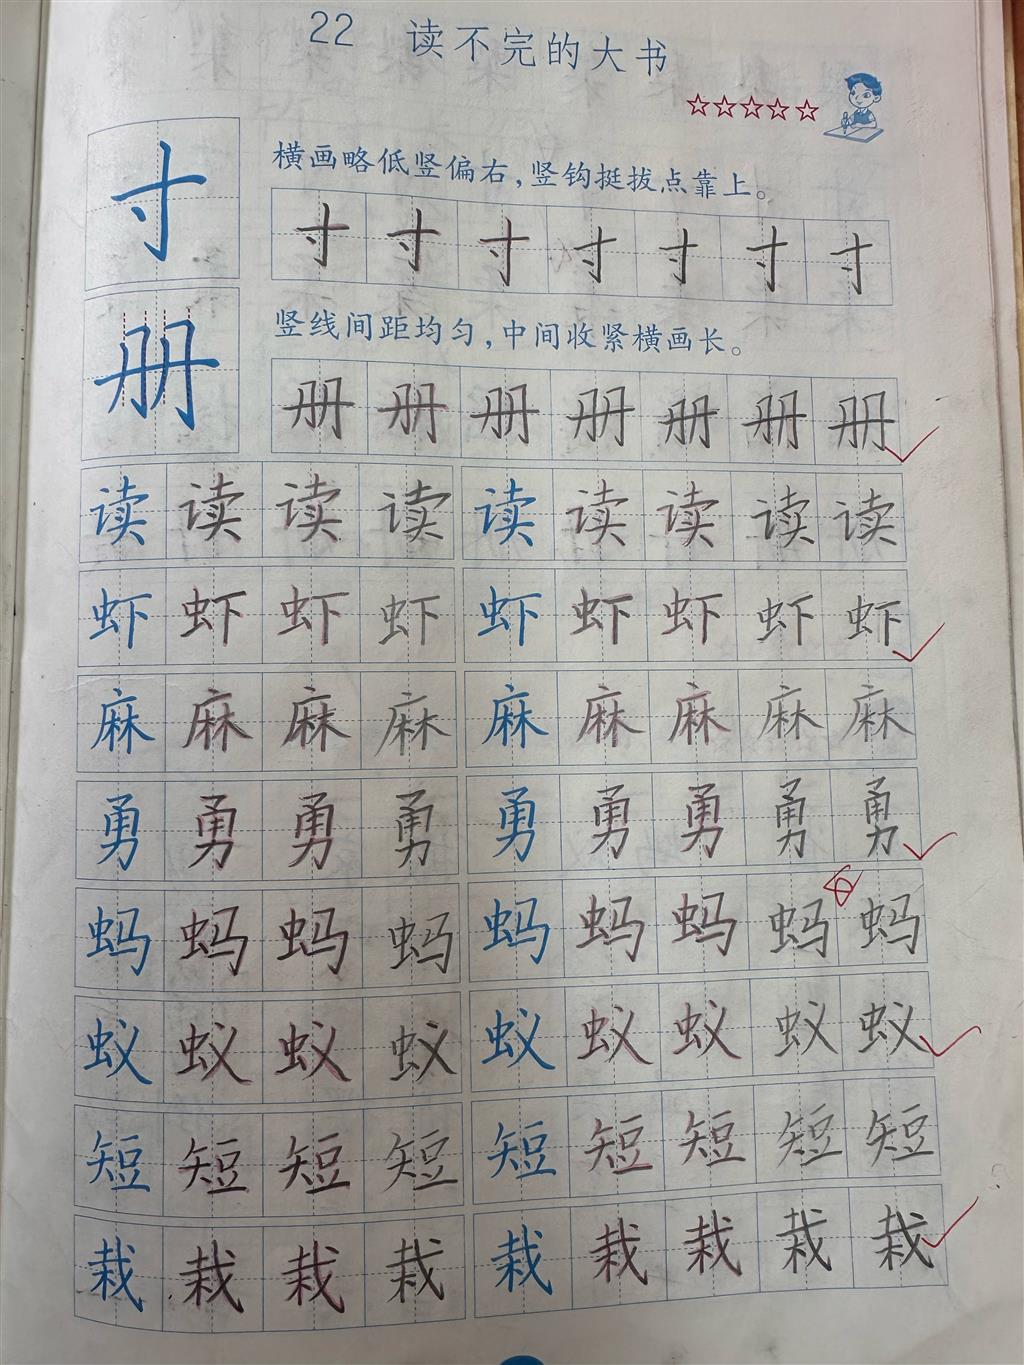 22 读不完的大书
寸
横画略低竖偏右，竖钩挺拔点靠上。
寸寸寸寸寸寸寸
册
竖线间距均匀，中间收紧横画长。
册册册册册册册
读读读读读读读读读
虾虾虾虾虾虾虾虾虾
麻麻麻麻麻麻麻麻麻
勇勇勇勇勇勇勇勇勇
蚂蚂蚂蚂蚂蚂蚂蚂蚂
蚁蚁蚁蚁蚁蚁蚁蚁蚁
短短短短短短短短短
栽栽栽栽栽栽栽栽栽